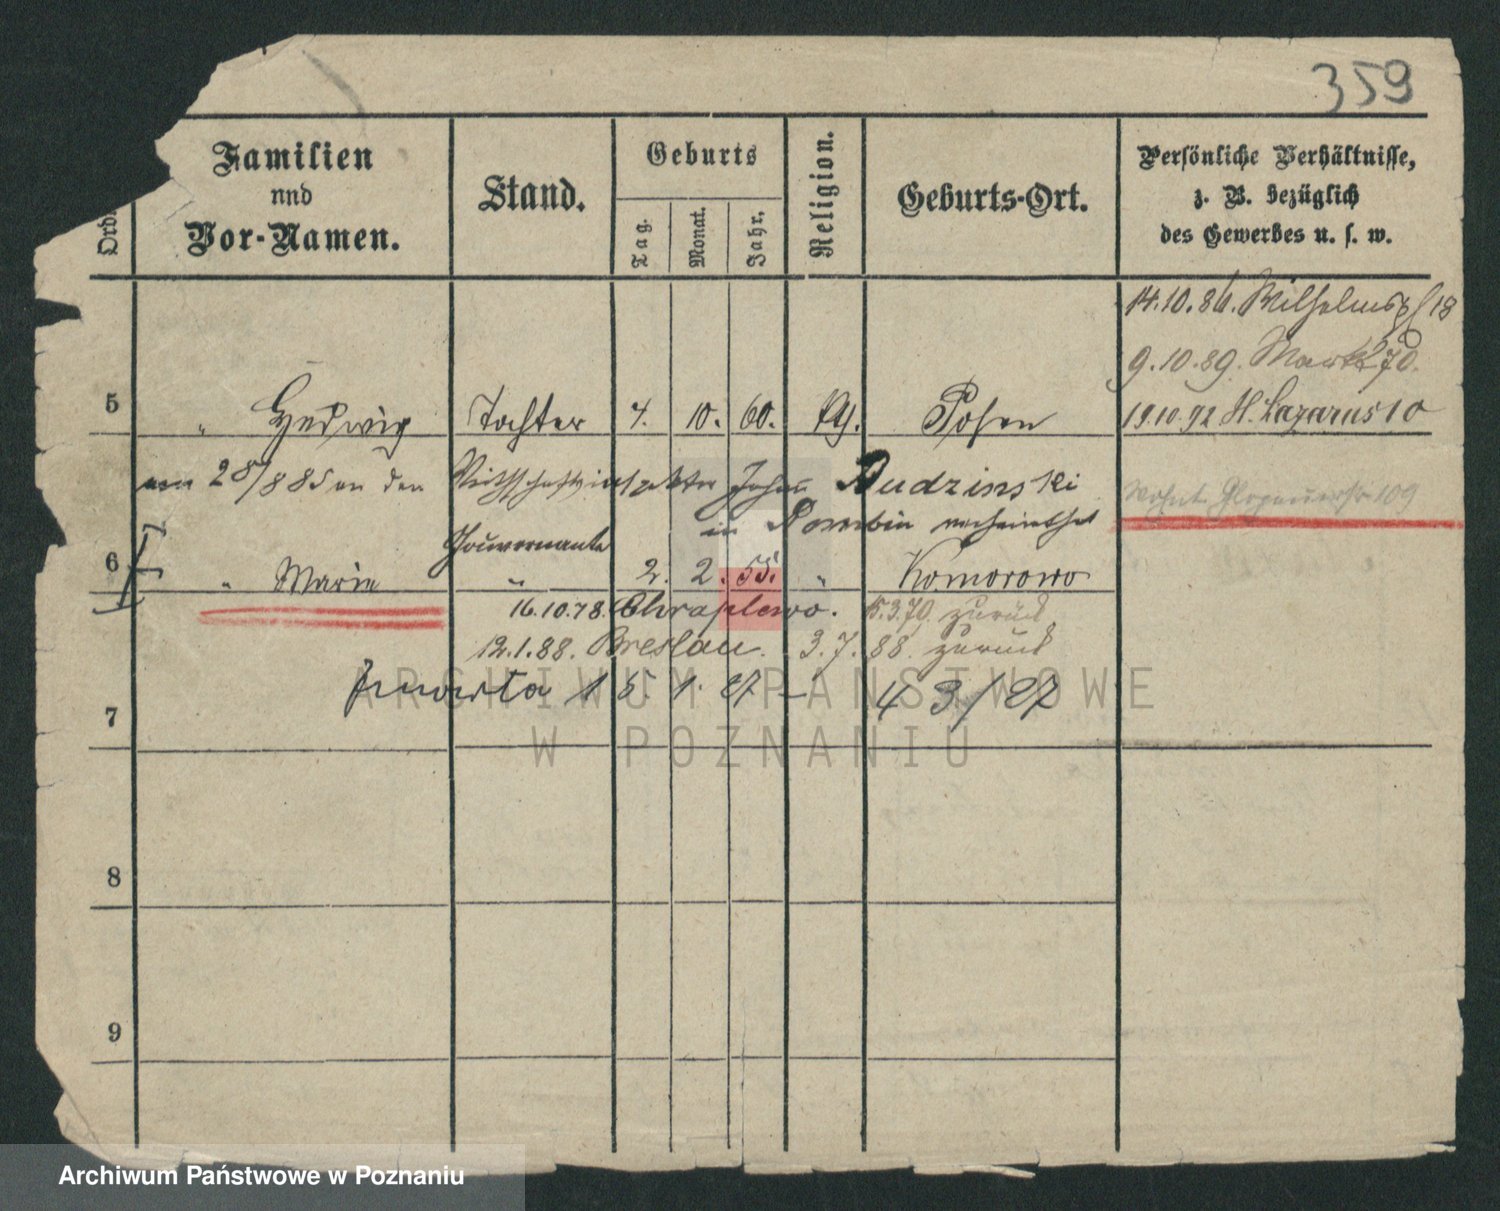 359
Ord.
Familien
und
Vor-Namen.
Stand.
Geburts
Tag.
Monat.
Jahr.
Religion.
Geburts-Ort.
Persönliche Verhältnisse,
z. B. bezüglich
des Gewerbes u. s. w.
14.10.86. Wilhelmspl 18
9.10.89. Markt 70.
5 " Hedwig Tochter 4. 10. 60. Posen 19.10.92 St. Lazarus 10
am 28/8 85 an den Wirthschaftsinspektor Johann Rudzinski
in verheirathet
wohnt 109
Gouvernante
6 " Marie " 2. 2. 55. " Komorowo
16.10.78. Chraplewo. 15.3.79. zurück
12.1.88. Breslau. 3.7.88. zurück
1 5. 1. 87 - 4 3/87
7
8
9
ARCHIWUM PAŃSTWOWE
W POZNANIU
Archiwum Państwowe w Poznaniu